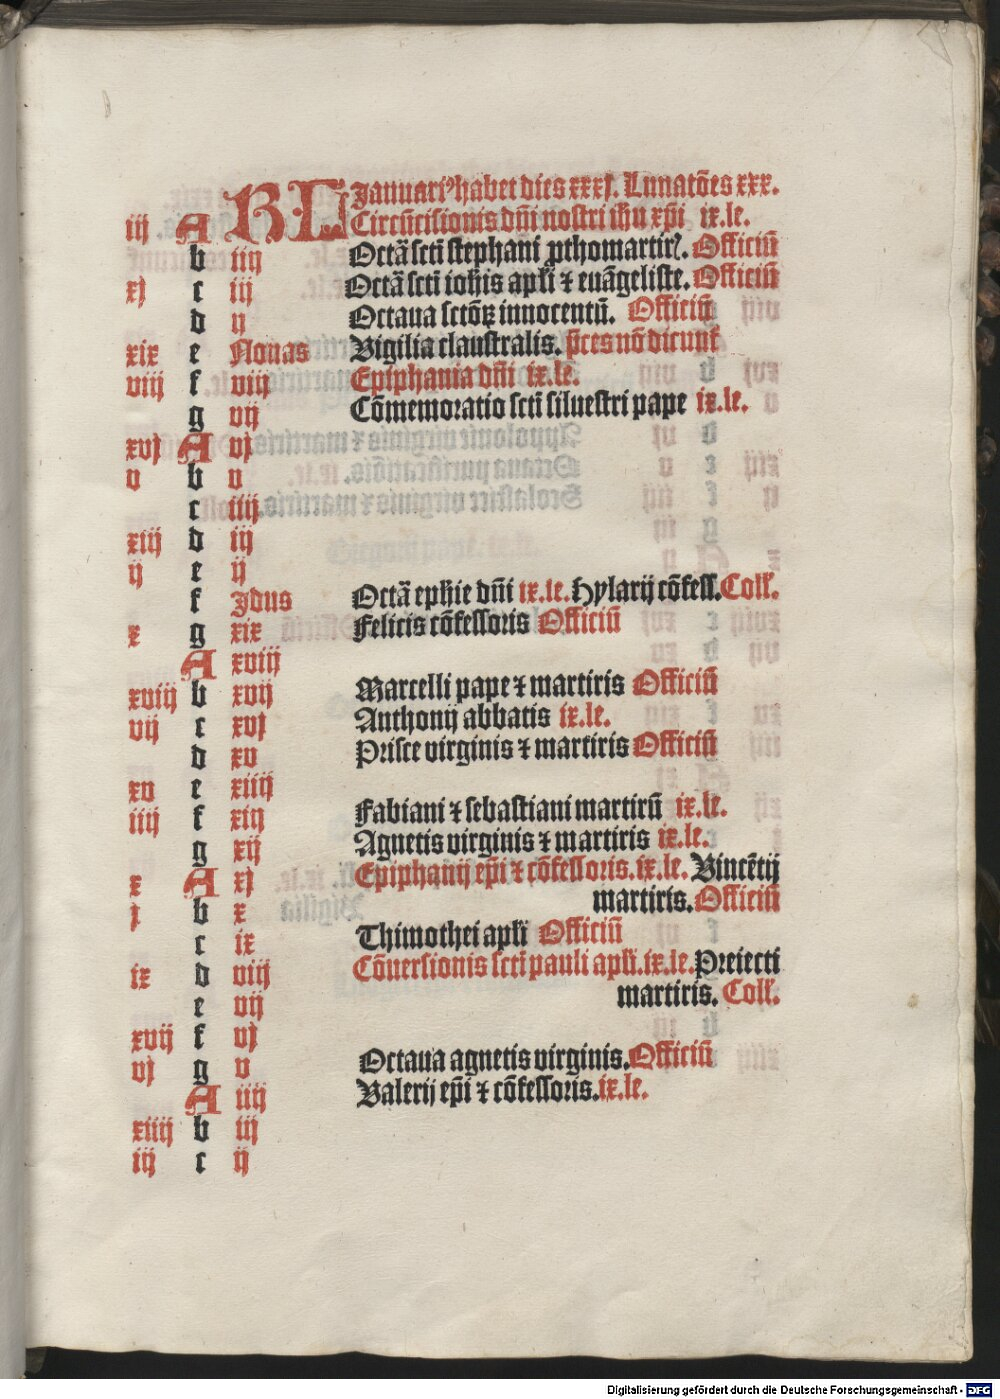 KL Januariꝰ habet dies xxxj. Lunatōes xxx.
iij A Circūcisionis dn̄i nostri ih̄u xp̄i ix.le.
b iiij Octā scti stephani ꝓthomartirꝭ. Officiū
xj c iij Octā scti ioh̄is apl̄i ⁊ euāgeliste. Officiū
d ij Octaua sctōꝝ innocentū. Officiū
xix e Nonas Vigilia claustralis. p̄ces nō dicunt̄
viij f viij Epiphania dn̄i ix.le.
g vij Cōmemoratio scti siluestri pape ix.le.
xvj A vj
v b v
c iiij
xiij d iij
ij e ij
f Jdus Octā ephie dn̄i ix.le. Hylarij cōfess. Coll̄.
x g xix Felicis cōfessoris Officiū
A xviij
xviij b xvij Marcelli pape ⁊ martiris Officiū
vij c xvj Anthonij abbatis ix.le.
d xv Prisce virginis ⁊ martiris Officiū
xv e xiiij
iiij f xiij Fabiani ⁊ sebastiani martirū ix.le.
g xij Agnetis virginis ⁊ martiris ix.le.
x A xj Epiphanij ep̄i ⁊ cōfessoris. ix.le. Vincētij
j b x martiris. Officiū
c ix Thimothei apl̄i Officiū
ix d viij Cōuersionis scti pauli apl̄i. ix.le. Preiecti
e vij martiris. Coll̄.
xvij f vj
vj g v Octaua agnetis virginis. Officiū
A iiij Valerij ep̄i ⁊ cōfessoris. ix.le.
xiiij b iij
iij c ij
Digitalisierung gefördert durch die Deutsche Forschungsgemeinschaft - DFG